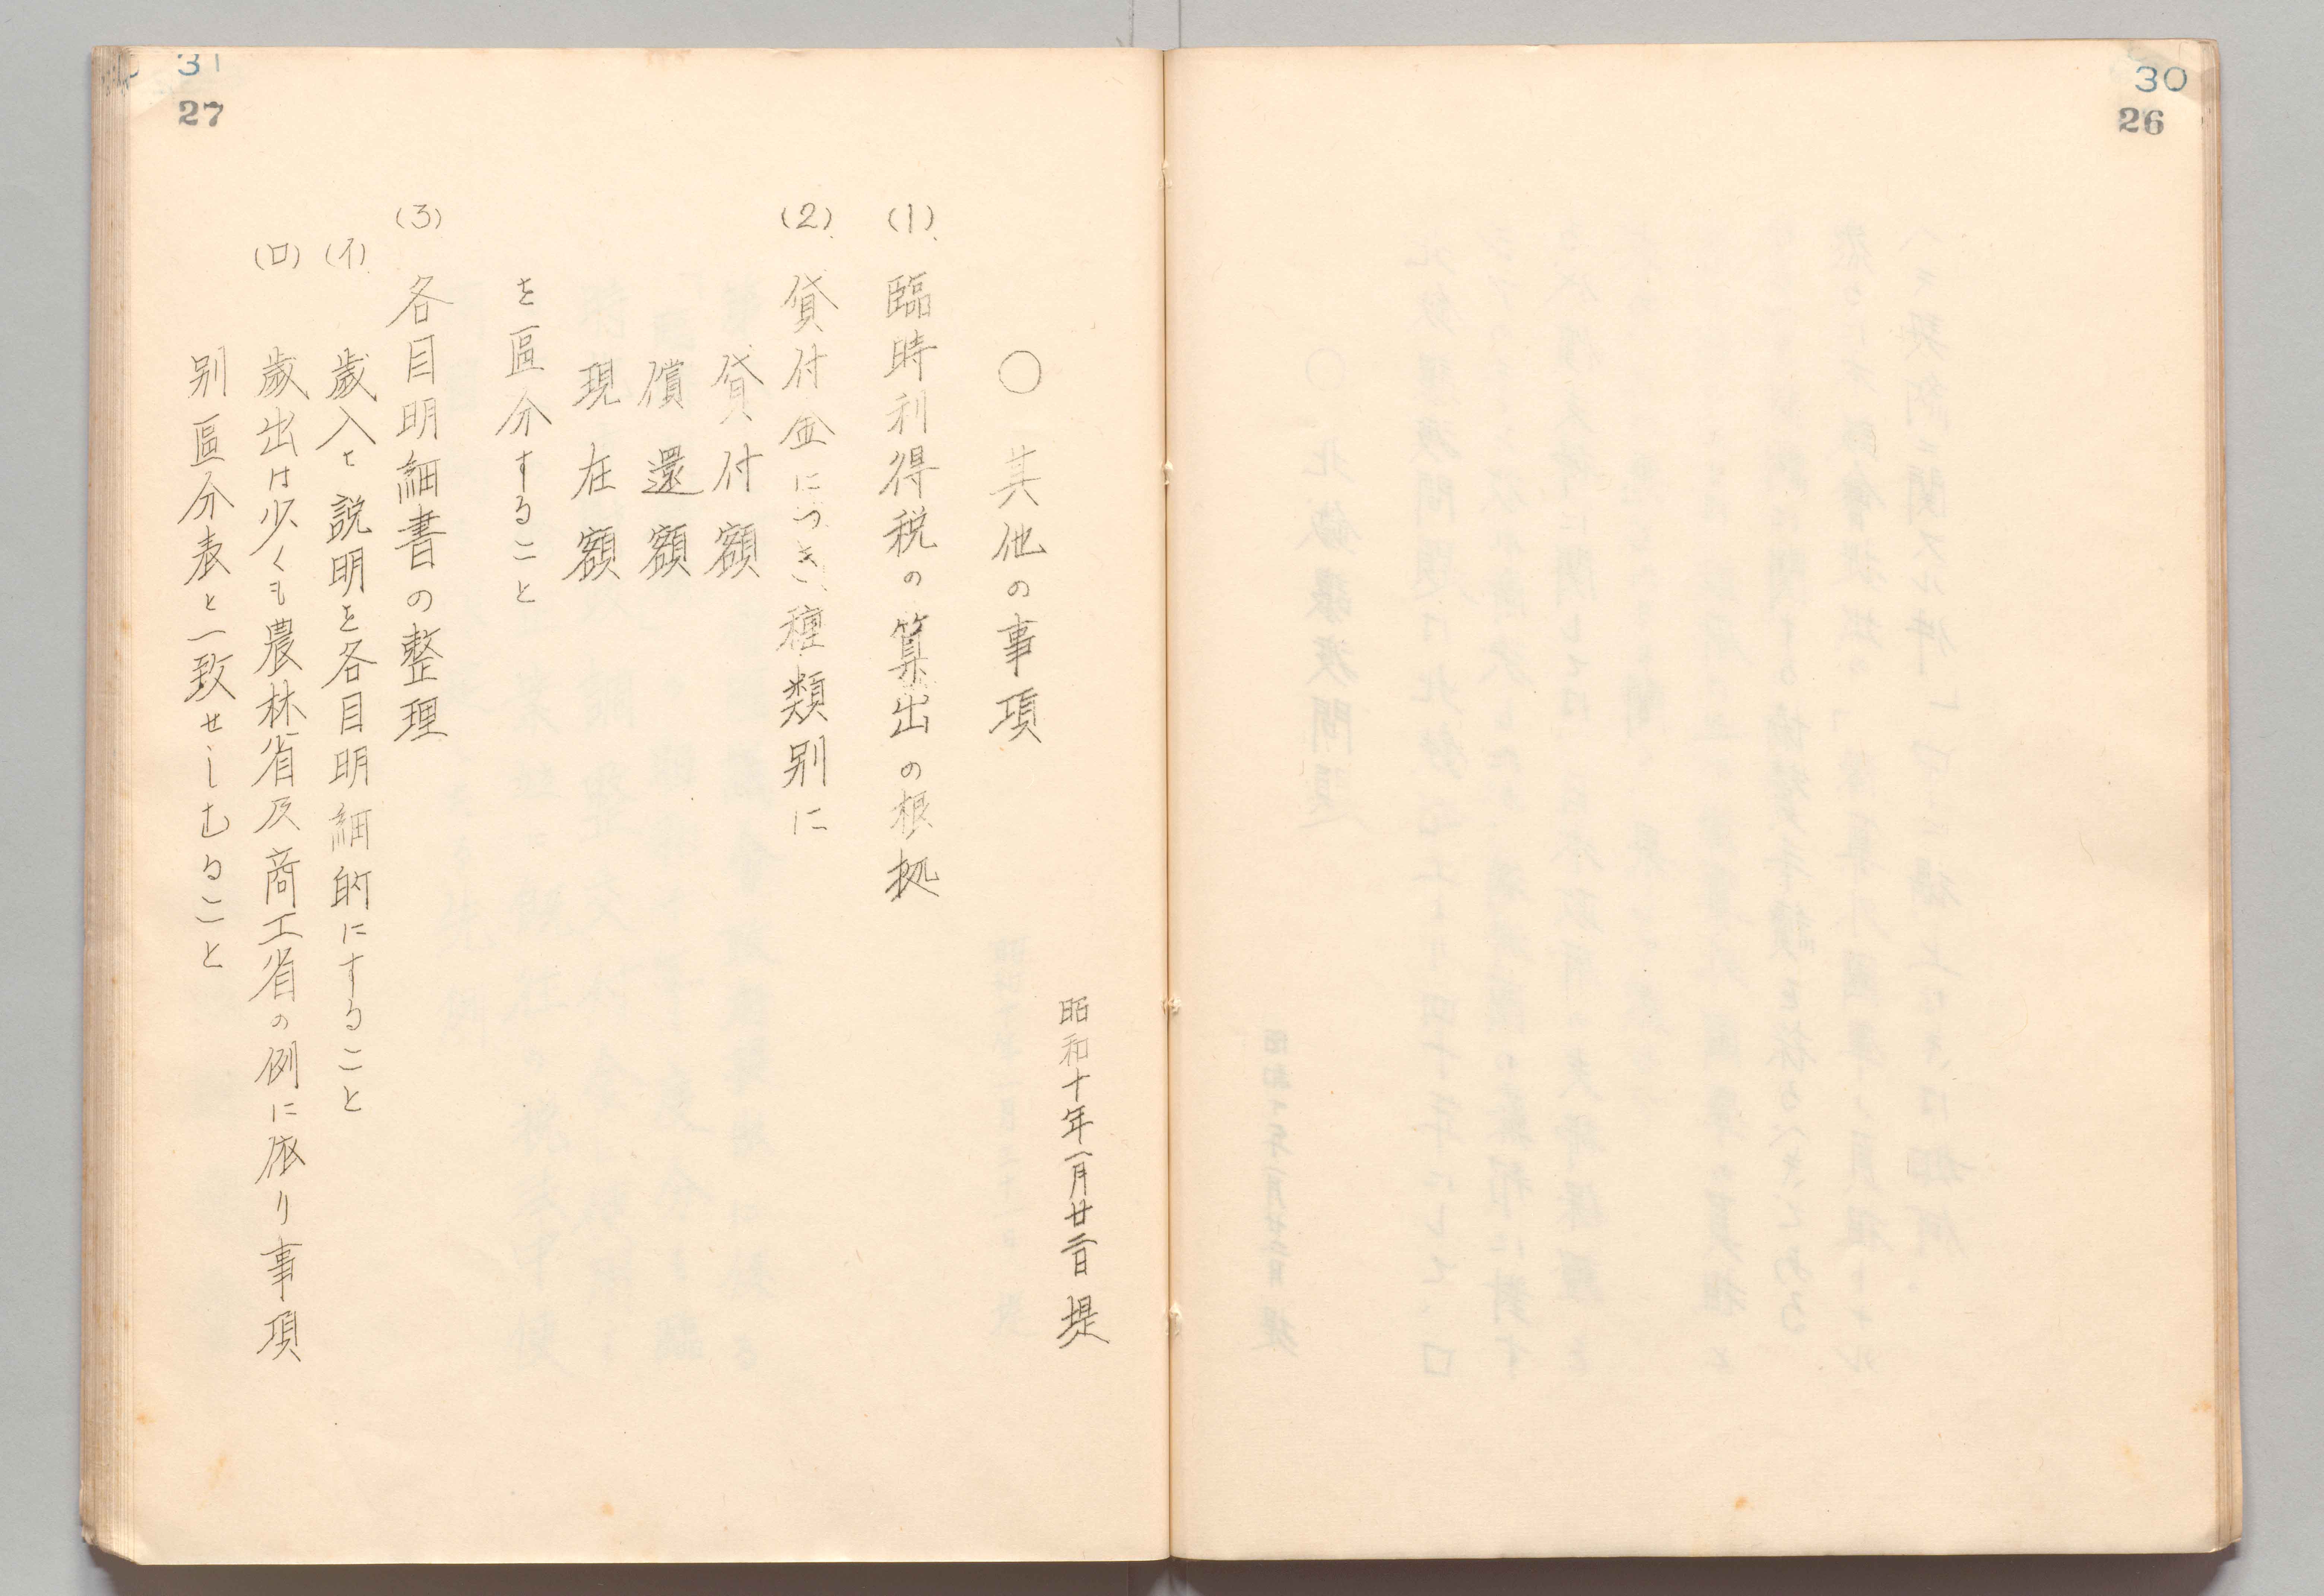 30
26
31
27
昭和十年一月廿二日 堤
○ 其他の事項
(1) 臨時利得税の算出の根拠
(2) 貸付金につき、種類別に
貸付額
償還額
現在額
を區分すること
(3) 各目明細書の整理
(イ) 歳入も説明を各目明細的にすること
(ロ) 歳出は少くも農林省及商工省の例に依り事項
別區分表と一致せしむること